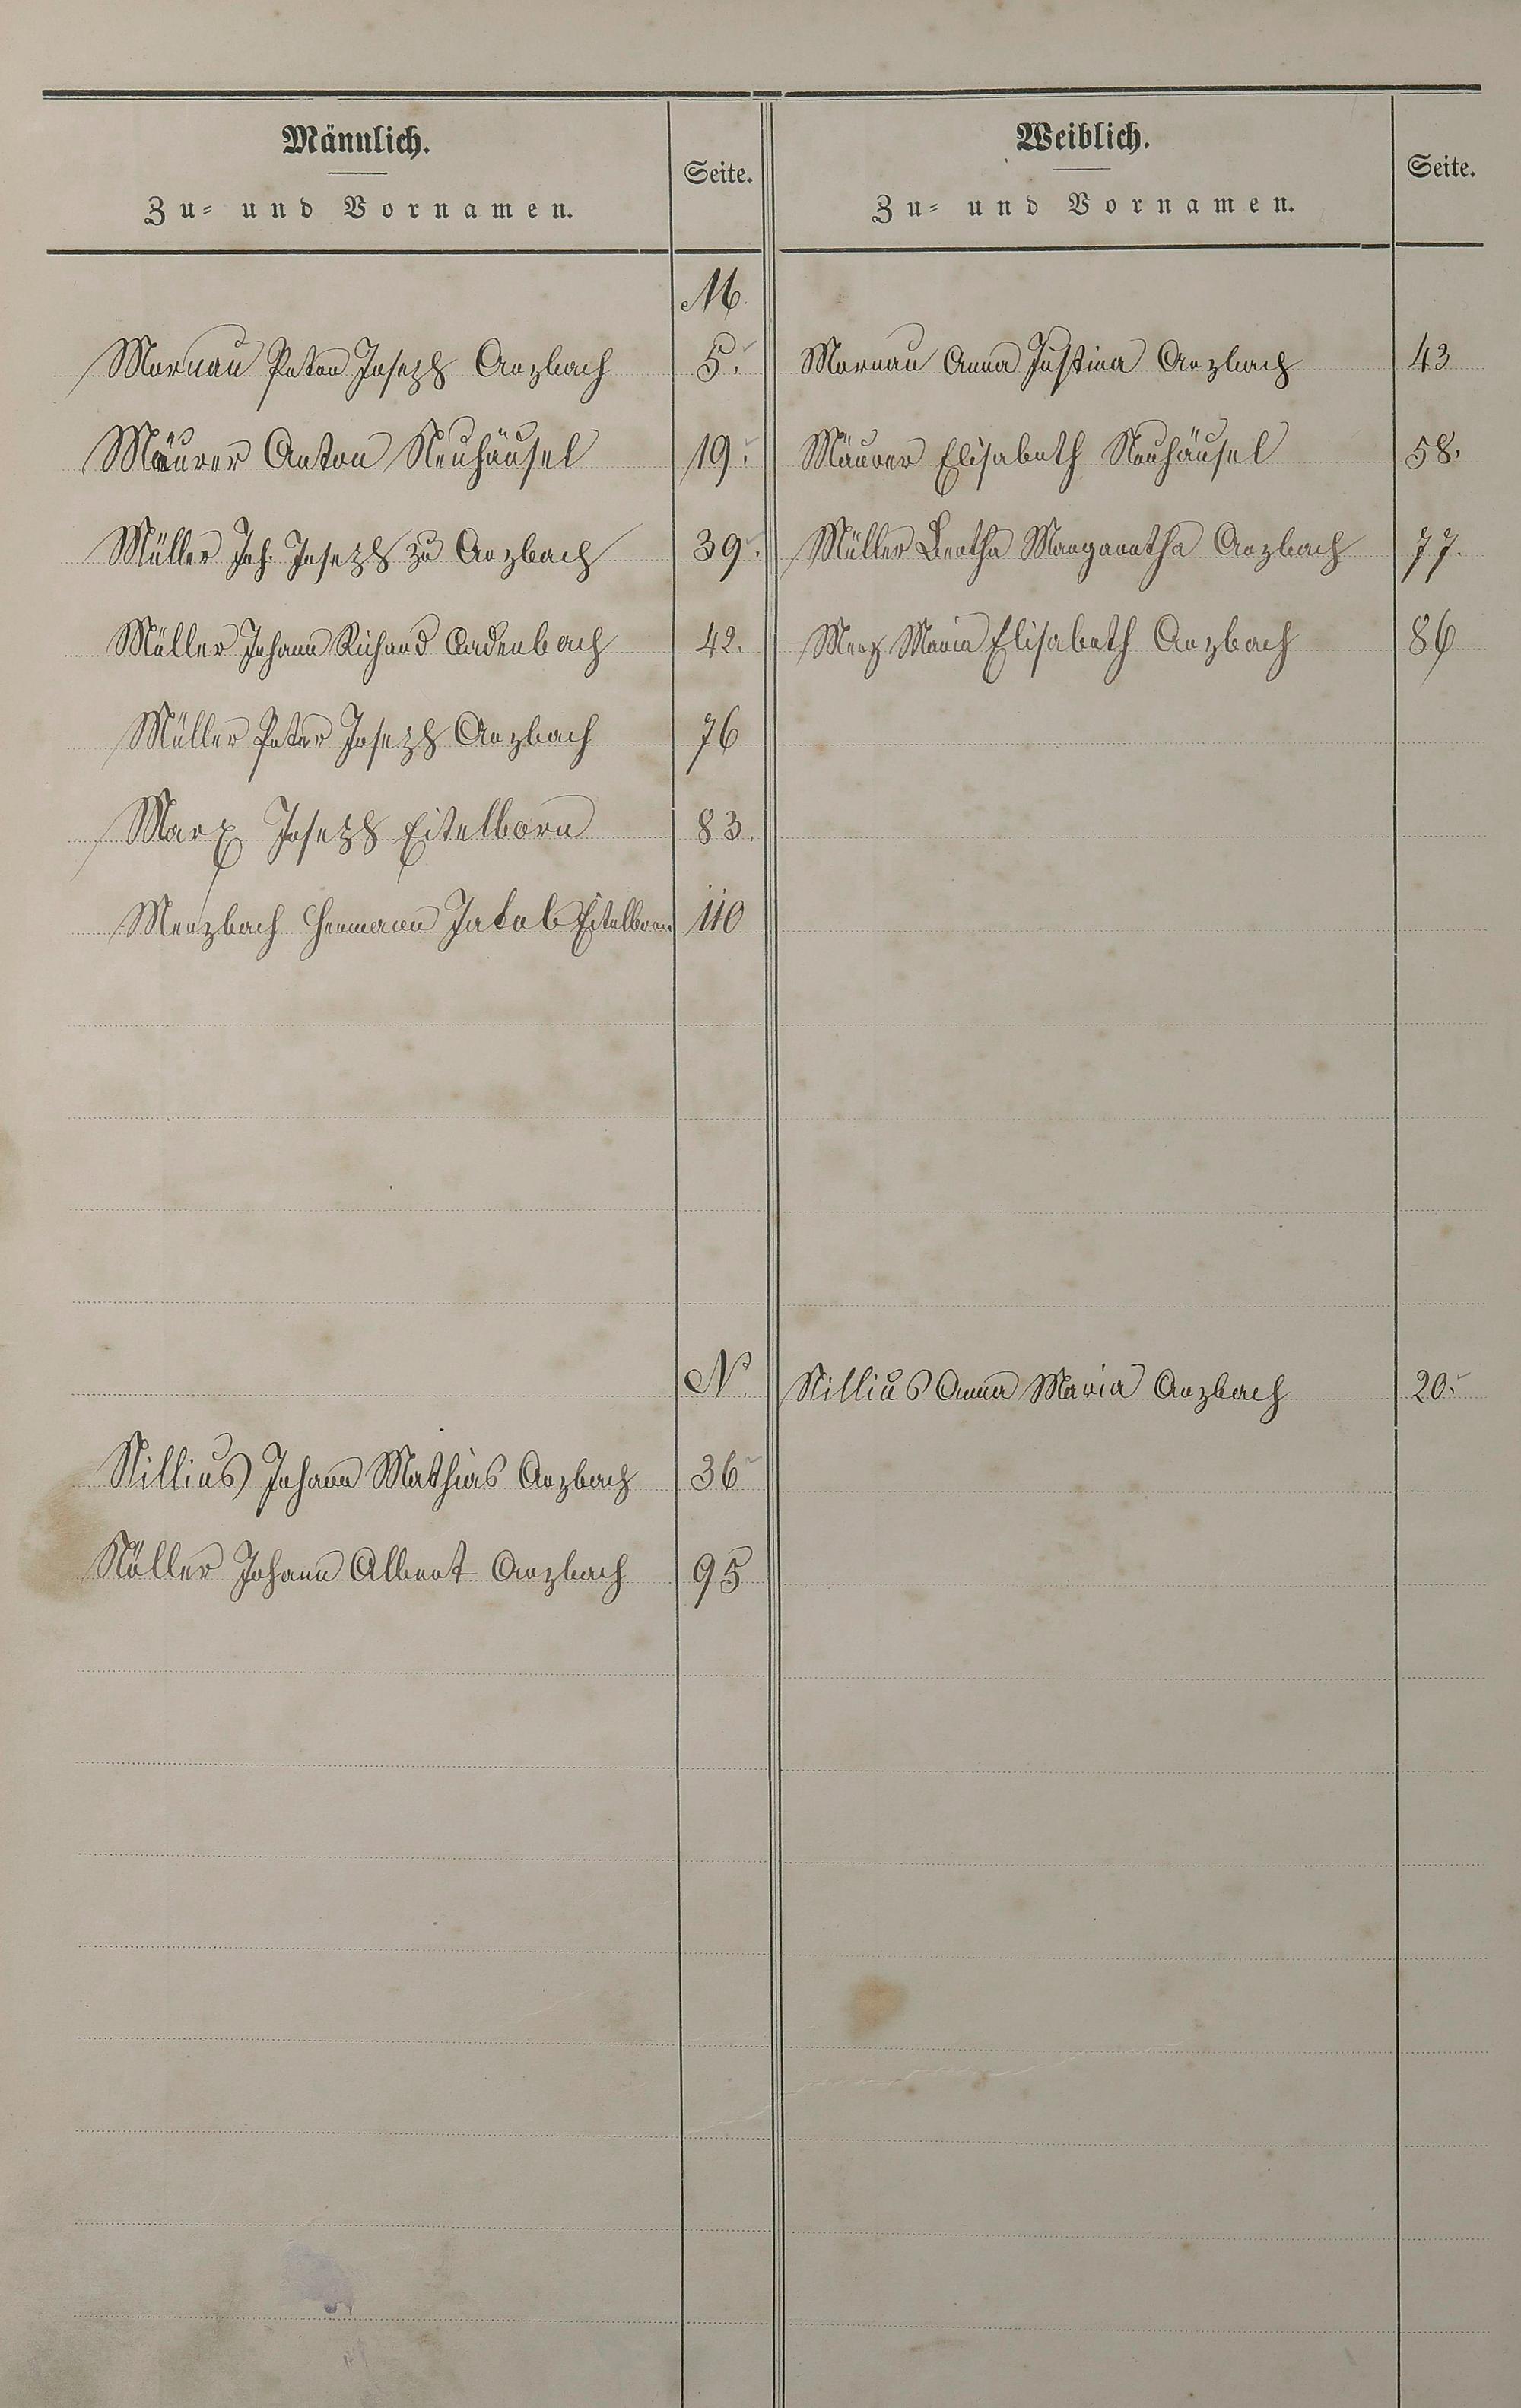 Männlich.
Zu- und Vornamen.
Seite.
Weiblich.
Zu- und Vornamen.
Seite.
M.
Mornau Peter Joseph Arzbach 5.
Mornau Anna Justina Arzbach 43
Mäurer Anton Neuhäusel 19.
Mäurer Elisabeth Neuhäusel 58.
Müller Joh. Joseph zu Arzbach 39.
Müller Bertha Margaretha Arzbach 77.
Müller Johann Richard Cadenbach 42.
Merz Maria Elisabeth Arzbach 86
Müller Peter Joseph Arzbach 76
Marx Joseph Eitelborn 83.
Merzbach Hermann Jakob Eitelborn 110
N.
Nillius Anna Maria Arzbach 20.
Nillius Johann Mathias Arzbach 36
Nöller Johann Albert Arzbach 95